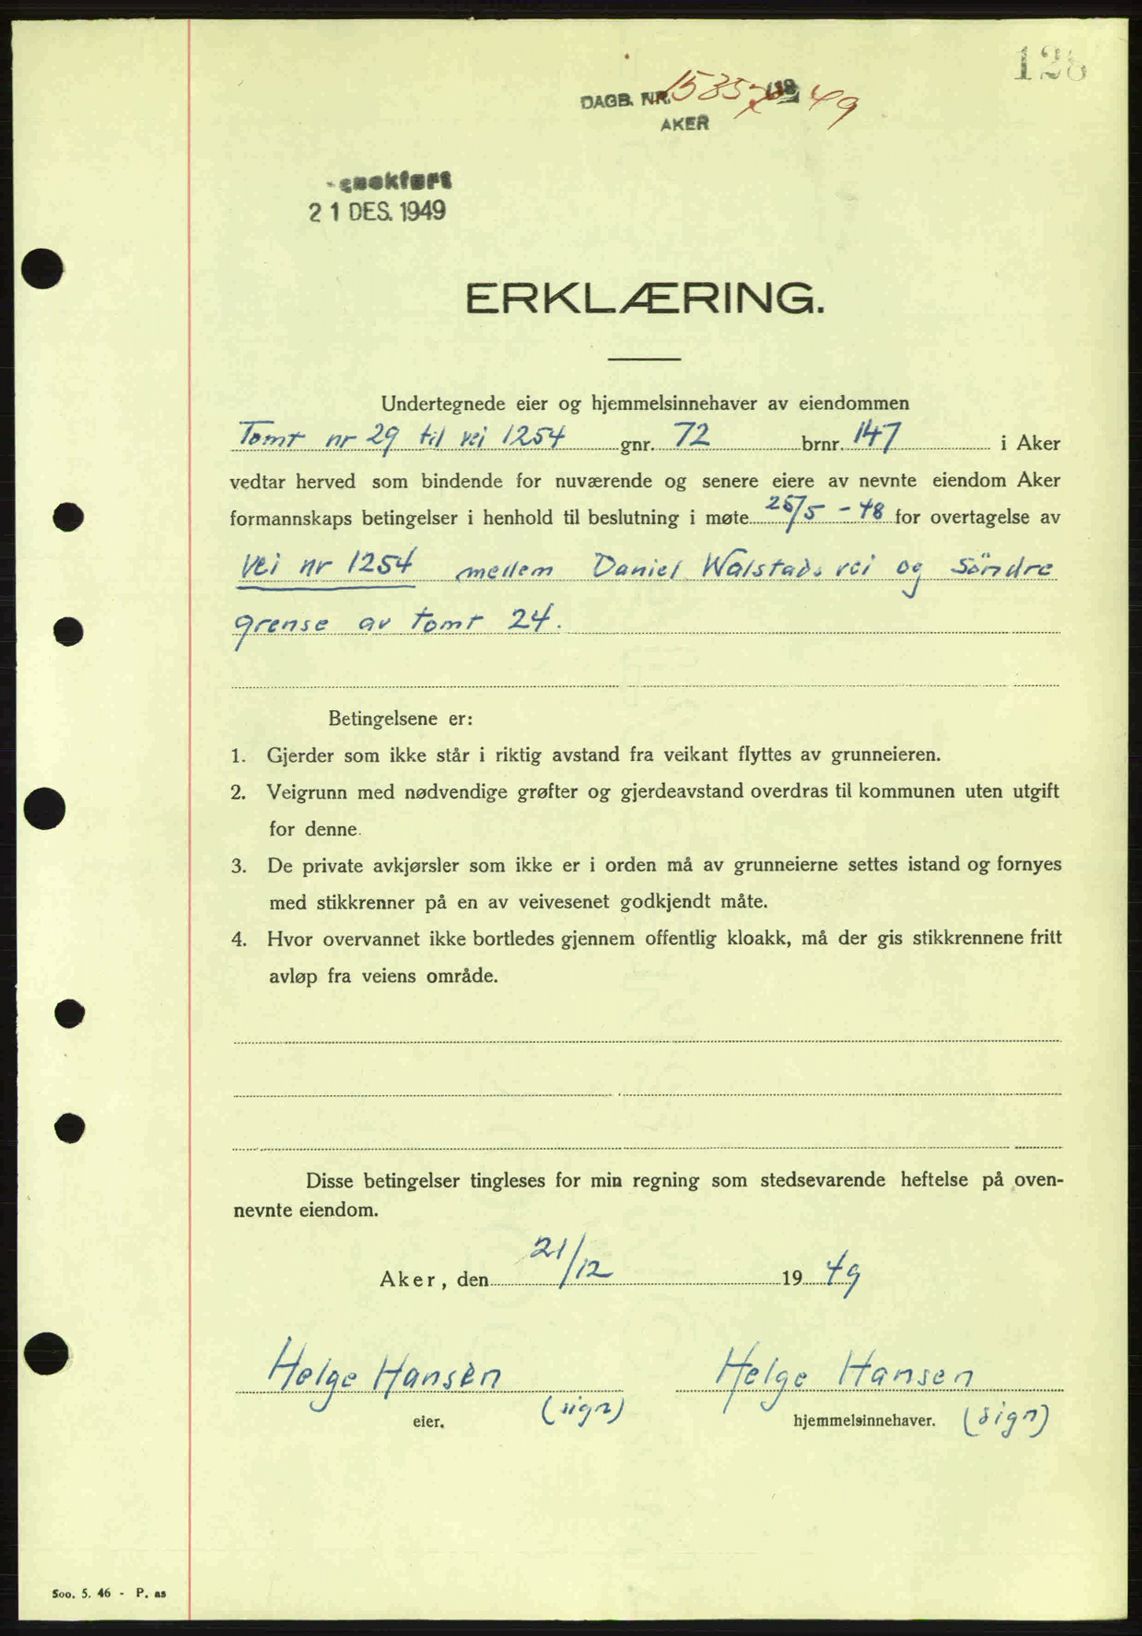 128
DAGB. NR. 15357 19 49
AKER
21 DES. 1949
ERKLÆRING.
Undertegnede eier og hjemmelsinnehaver av eiendommen
Tomt nr 29 til vei 1254 gnr. 72 brnr. 147 i Aker
vedtar herved som bindende for nuværende og senere eiere av nevnte eiendom Aker
formannskaps betingelser i henhold til beslutning i møte 25/5 - 48 for overtagelse av
Vei nr 1254 mellem Daniel Walstads vei og Söndre
grense av tomt 24.
Betingelsene er:
1. Gjerder som ikke står i riktig avstand fra veikant flyttes av grunneieren.
2. Veigrunn med nødvendige grøfter og gjerdeavstand overdras til kommunen uten utgift
for denne.
3. De private avkjørsler som ikke er i orden må av grunneierne settes istand og fornyes
med stikkrenner på en av veivesenet godkjendt måte.
4. Hvor overvannet ikke bortledes gjennem offentlig kloakk, må der gis stikkrennene fritt
avløp fra veiens område.
Disse betingelser tingleses for min regning som stedsevarende heftelse på oven-
nevnte eiendom.
Aker, den 21/12 19 49
Helge Hansen Helge Hansen
eier. (sign) hjemmelsinnehaver. (sign)
5oo. 5. 46 - P. as